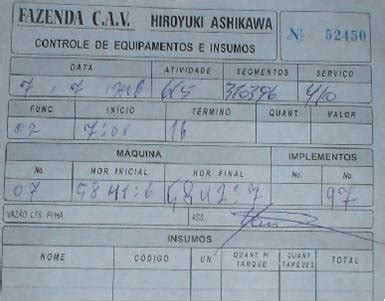 FAZENDA C.A.V. HIROYUKI ASHIKAWA
CONTROLE DE EQUIPAMENTOS E INSUMOS
Nº 52450
DATA ATIVIDADE SEGMENTOS SERVIÇO
7 7
FUNC. INÍCIO TÉRMINO QUANT VALOR
02 7:00 16
MÁQUINA IMPLEMENTOS
No. HOR. INICIAL HOR. FINAL No.
07 5841:6 5842:7 97
VAZÃO LTS. P/HA. ASS.
INSUMOS
NOME CÓDIGO UN. QUANT P/ TANQUE QUANT TANQUES TOTAL